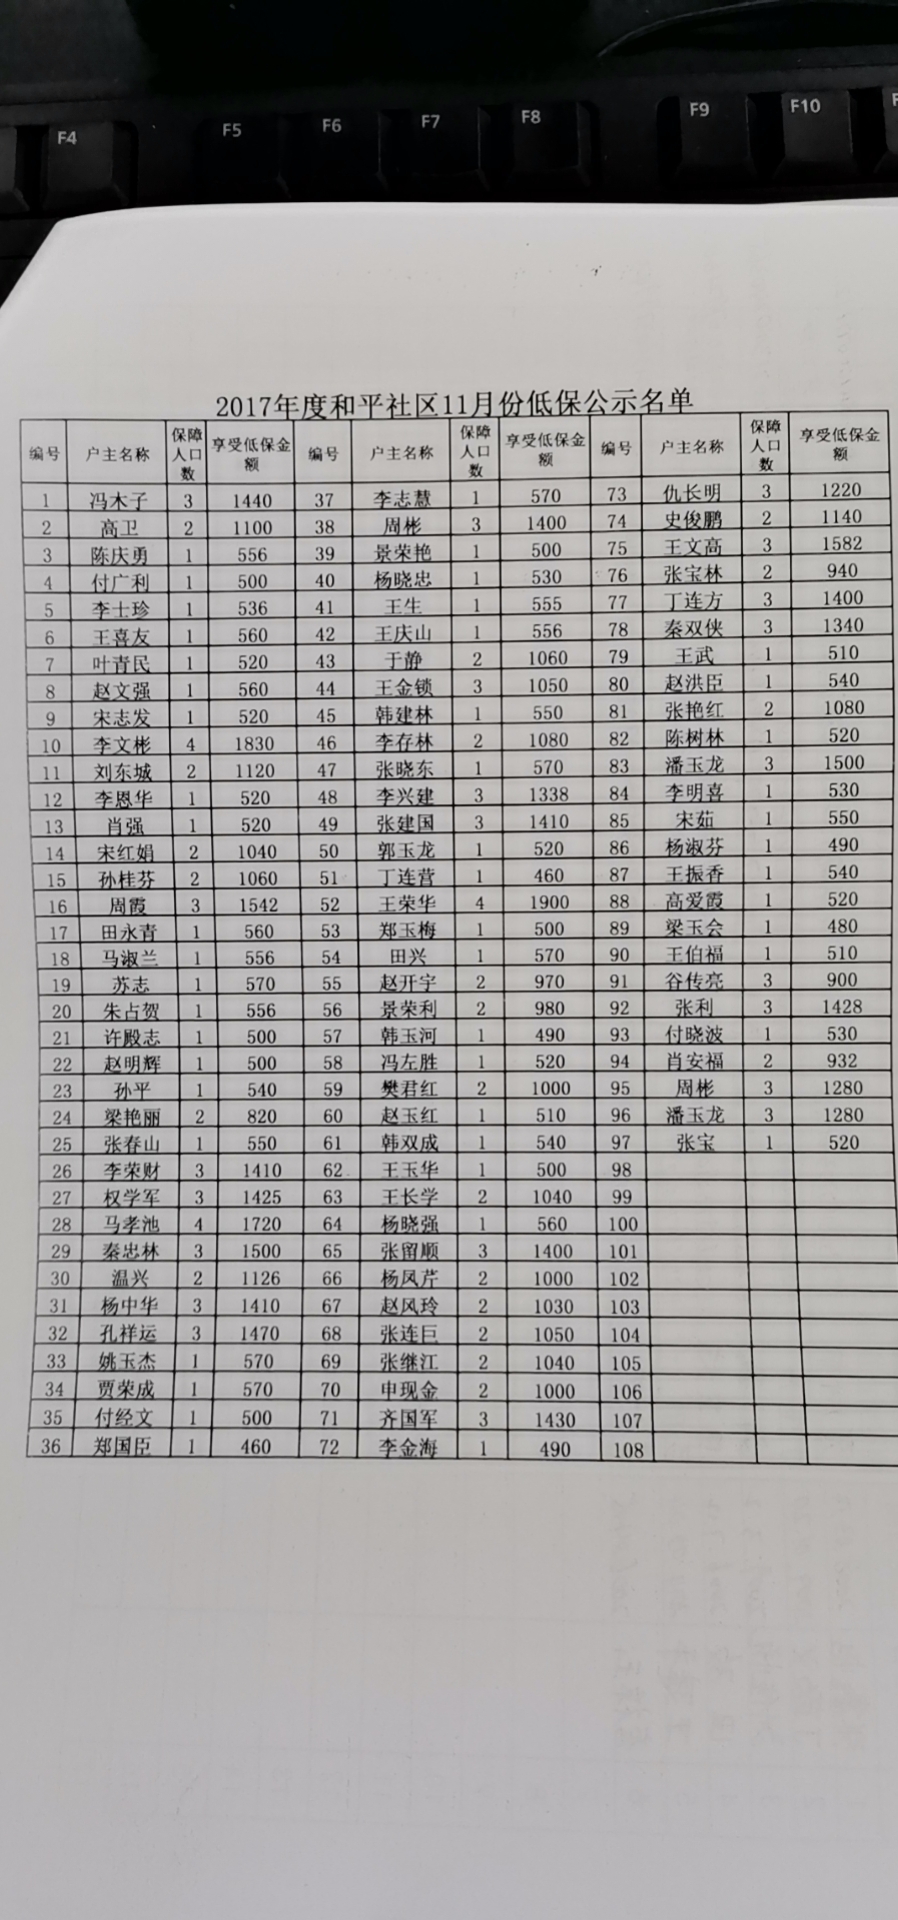 F4 F5 F6 F7 F8 F9 F10
2017年度和平社区11月份低保公示名单
编号 户主名称 保障人口数 享受低保金额 编号 户主名称 保障人口数 享受低保金额 编号 户主名称 保障人口数 享受低保金额
1 冯木子 3 1440 37 李志慧 1 570 73 仇长明 3 1220
2 高卫 2 1100 38 周彬 3 1400 74 史俊鹏 2 1140
3 陈庆勇 1 556 39 景荣艳 1 500 75 王文高 3 1582
4 付广利 1 500 40 杨晓忠 1 530 76 张宝林 2 940
5 李士珍 1 536 41 王生 1 555 77 丁连方 3 1400
6 王喜友 1 560 42 王庆山 1 556 78 秦双侠 3 1340
7 叶青民 1 520 43 于静 2 1060 79 王武 1 510
8 赵文强 1 560 44 王金锁 3 1050 80 赵洪臣 1 540
9 宋志发 1 520 45 韩建林 1 550 81 张艳红 2 1080
10 李文彬 4 1830 46 李存林 2 1080 82 陈树林 1 520
11 刘东城 2 1120 47 张晓东 1 570 83 潘玉龙 3 1500
12 李恩华 1 520 48 李兴建 3 1338 84 李明喜 1 530
13 肖强 1 520 49 张建国 3 1410 85 宋茹 1 550
14 宋红娟 2 1040 50 郭玉龙 1 520 86 杨淑芬 1 490
15 孙桂芬 2 1060 51 丁连营 1 460 87 王振香 1 540
16 周霞 3 1542 52 王荣华 4 1900 88 高爱霞 1 520
17 田永青 1 560 53 郑玉梅 1 500 89 梁玉会 1 480
18 马淑兰 1 556 54 田兴 1 570 90 王伯福 1 510
19 苏志 1 570 55 赵开宇 2 970 91 谷传亮 3 900
20 朱占贺 1 556 56 景荣利 2 980 92 张利 3 1428
21 许殿志 1 500 57 韩玉河 1 490 93 付晓波 1 530
22 赵明辉 1 500 58 冯左胜 1 520 94 肖安福 2 932
23 孙平 1 540 59 樊君红 2 1000 95 周彬 3 1280
24 梁艳丽 2 820 60 赵玉红 1 510 96 潘玉龙 3 1280
25 张春山 1 550 61 韩双成 1 540 97 张宝 1 520
26 李荣财 3 1410 62 王玉华 1 500 98
27 权学军 3 1425 63 王长学 2 1040 99
28 马孝池 4 1720 64 杨晓强 1 560 100
29 秦忠林 3 1500 65 张留顺 3 1400 101
30 温兴 2 1126 66 杨凤芹 2 1000 102
31 杨中华 3 1410 67 赵风玲 2 1030 103
32 孔祥运 3 1470 68 张连巨 2 1050 104
33 姚玉杰 1 570 69 张继江 2 1040 105
34 贾荣成 1 570 70 申现金 2 1000 106
35 付经文 1 500 71 齐国军 3 1430 107
36 郑国臣 1 460 72 李金海 1 490 108